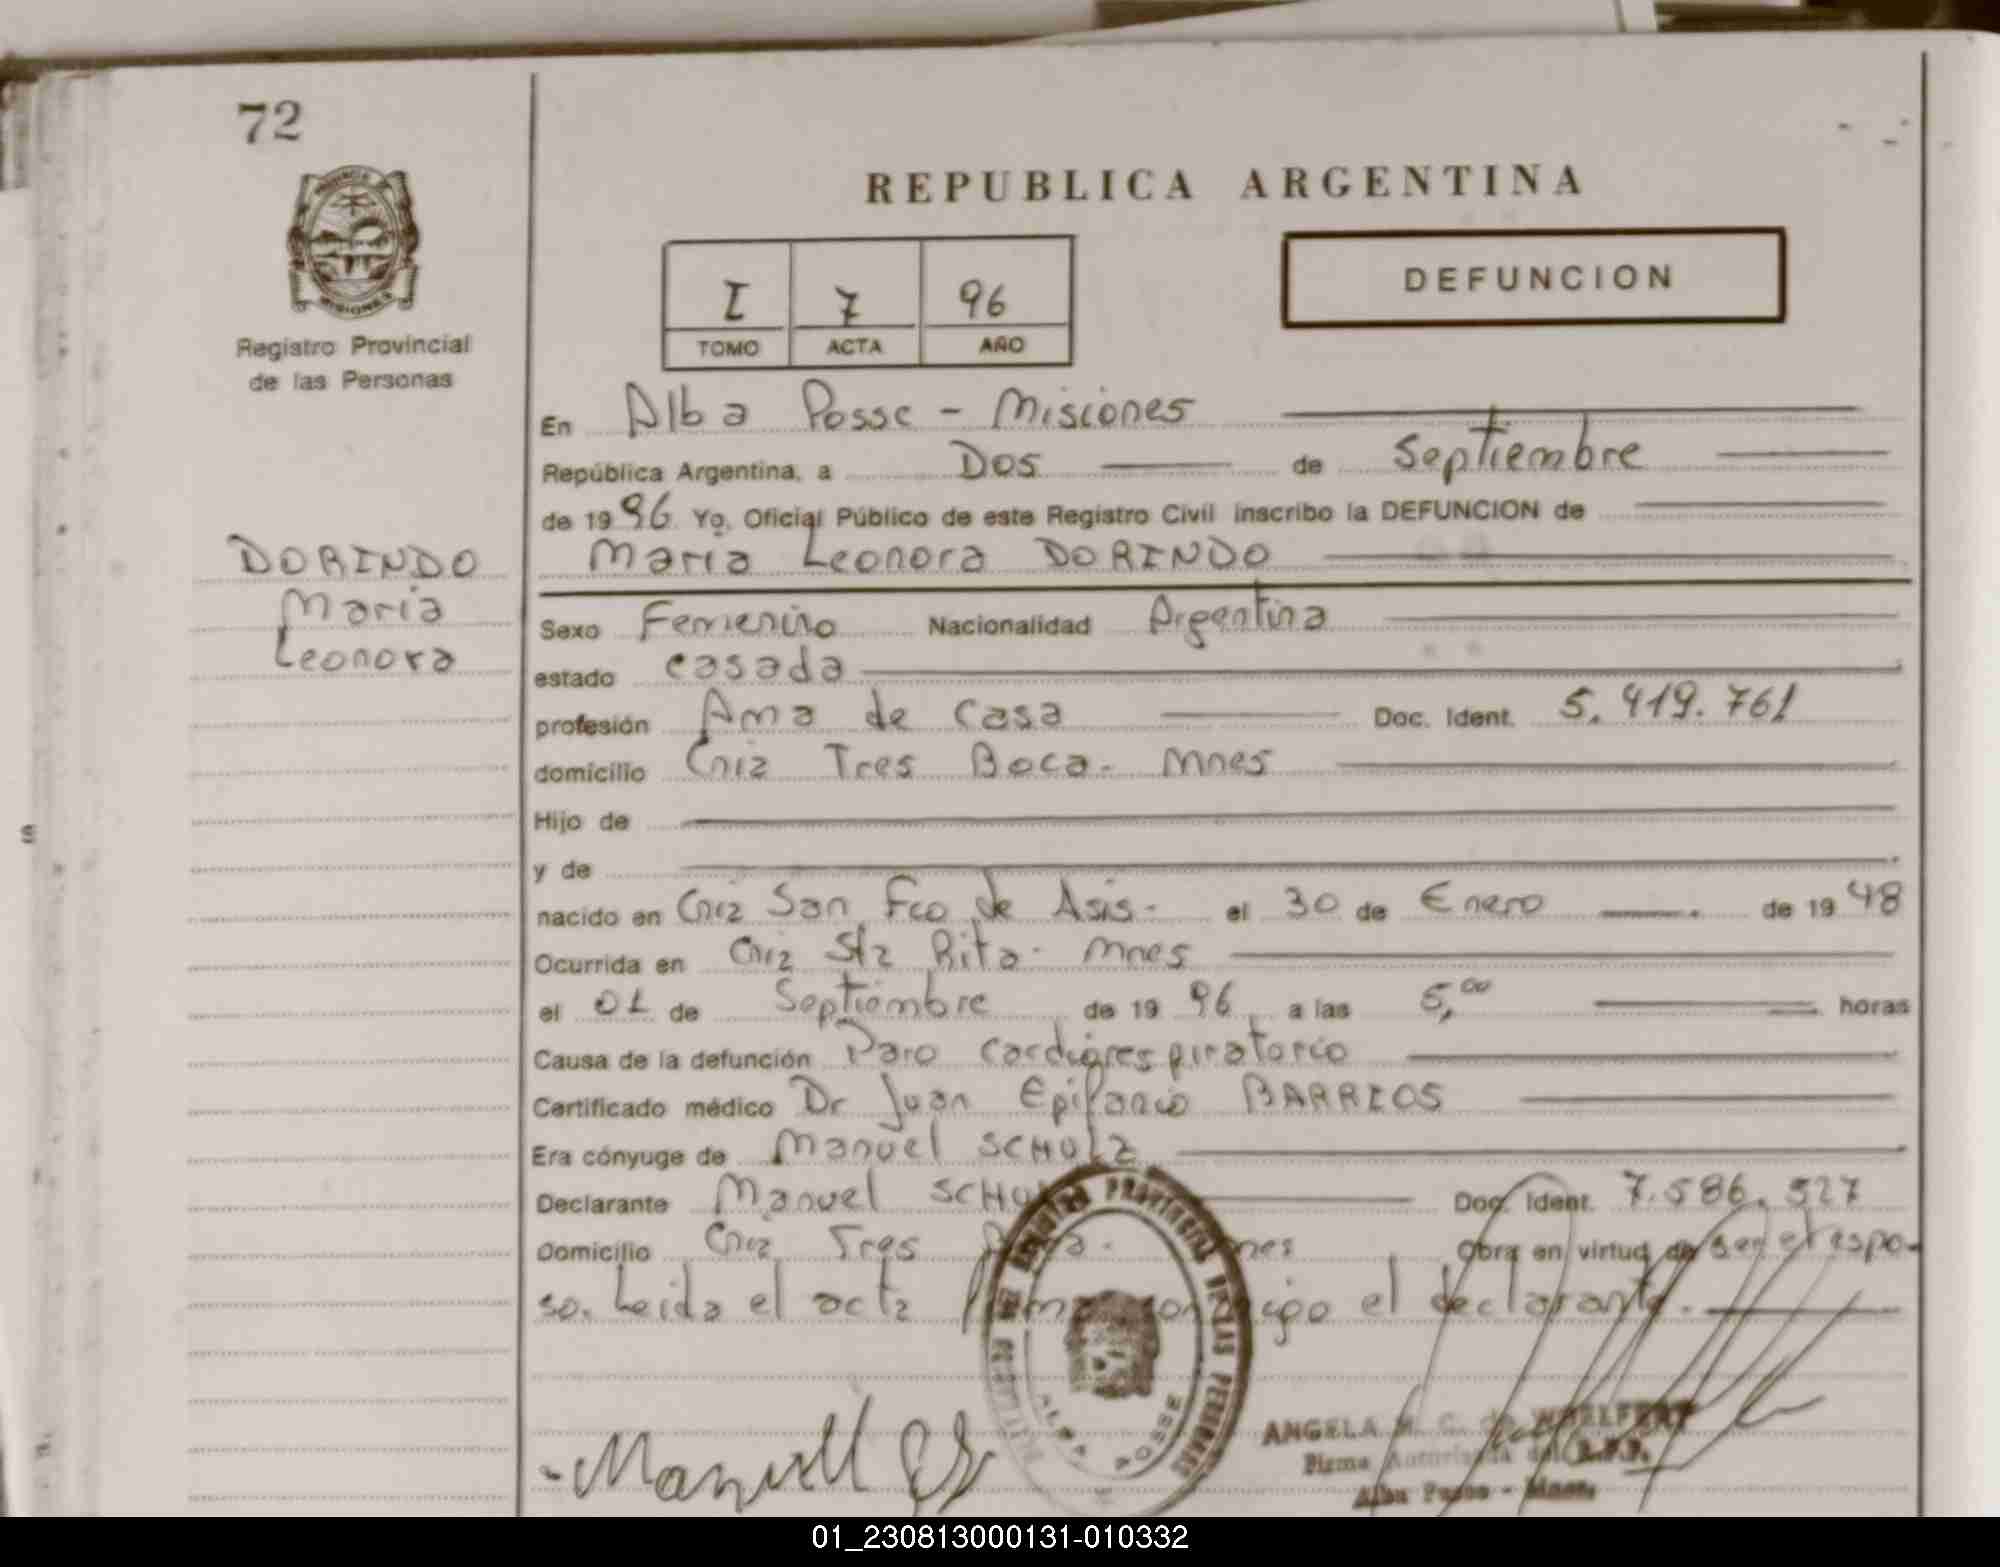 72
REPUBLICA ARGENTINA
DEFUNCION
I 7 96
TOMO ACTA AÑO
Registro Provincial
de las Personas
En Alba Posse - Misiones
República Argentina, a Dos de Septiembre
de 1996 Yo, Oficial Público de este Registro Civil inscribo la DEFUNCION de
Maria Leonora DORINDO
DORINDO
Maria
Leonora
Sexo Femenino Nacionalidad Argentina
estado casada
profesión Ama de Casa Doc. Ident. 5.419.761
domicilio Cnia Tres Boca - Mnes
Hijo de
y de
nacido en Cnia San Fco de Asis - el 30 de Enero de 1948
Ocurrida en Cnia Sta Rita - Mnes
el 01 de Septiembre de 1996 a las 5,00 horas
Causa de la defunción Paro Cardiorespiratorio
Certificado médico Dr Juan Epifanio BARRIOS
Era cónyuge de Manuel SCHULZ
Declarante Manuel Doc. Ident. 7.586.527
Domicilio Cnia Tres Obra en virtud de ser el espo-
so. Leida el acta firma conmigo el declarante.
REGISTRO PROVINCIAL DE LAS PERSONAS
ALBA POSSE
ANGELA M. C. de WHELFERT
Firma Autorizada del R.P.P.
Alba Posse - Mnes.
01_230813000131-010332